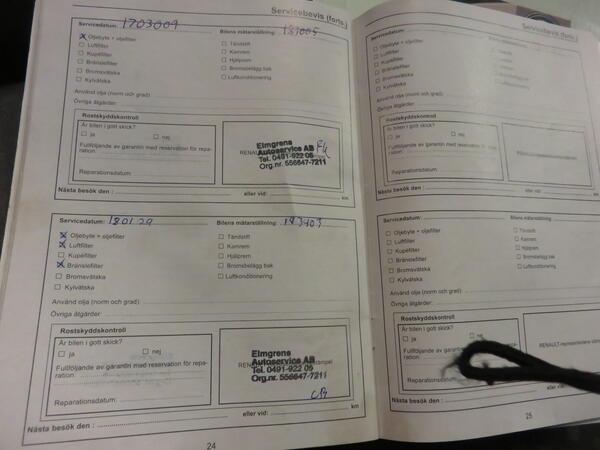 Servicebevis (forts.)
Servicedatum: Bilens mätarställning:
Oljebyte + oljefilter
Luftfilter Tändstift
Kupéfilter Kamrem
Bränslefilter Hjälprem
Bromsvätska Bromsbelägg bak
Kylvätska Luftkonditionering
Använd olja (norm och grad)
Övriga åtgärder:
Rostskyddskontroll
Är bilen i gott skick?
ja nej
Fullföljande av garantin med reservation för repa-
ration:
Reparationsdatum:
Elmgrens
Autoservice AB
Tel. 0491-922 06
Org.nr. 556647-7211
Nästa besök den : eller vid: km
Servicedatum: 180129 Bilens mätarställning:
Oljebyte + oljefilter Tändstift
Luftfilter Kamrem
Kupéfilter Hjälprem
Bränslefilter Bromsbelägg bak
Bromsvätska Luftkonditionering
Kylvätska
Använd olja (norm och grad):
Övriga åtgärder:
Rostskyddskontroll
Är bilen i gott skick?
ja nej
Fullföljande av garantin med reservation för repa-
ration:
Reparationsdatum:
Elmgrens
Autoservice AB
Tel. 0491-922 06
Org.nr. 556647-7211
Nästa besök den : eller vid: km
24
Servicebevis (forts.)
Servicedatum: Bilens mätarställning:
Oljebyte + oljefilter
Luftfilter Tändstift
Kupéfilter Kamrem
Bränslefilter Hjälprem
Bromsvätska Bromsbelägg bak
Kylvätska Luftkonditionering
Använd olja (norm och grad)
Övriga åtgärder:
Rostskyddskontroll
Är bilen i gott skick?
ja nej
Fullföljande av garantin med reservation för repa-
ration:
Reparationsdatum:
Nästa besök den : eller vid:
Servicedatum: Bilens mätarställning:
Oljebyte + oljefilter Tändstift
Luftfilter Kamrem
Kupéfilter Hjälprem
Bränslefilter Bromsbelägg bak
Bromsvätska Luftkonditionering
Kylvätska
Använd olja (norm och grad):
Övriga åtgärder:
Rostskyddskontroll
Är bilen i gott skick?
ja
Fullföljande av garantin med
ration:
Reparationsdatum:
RENAULT-representantens
Nästa besök den : eller vid:
25